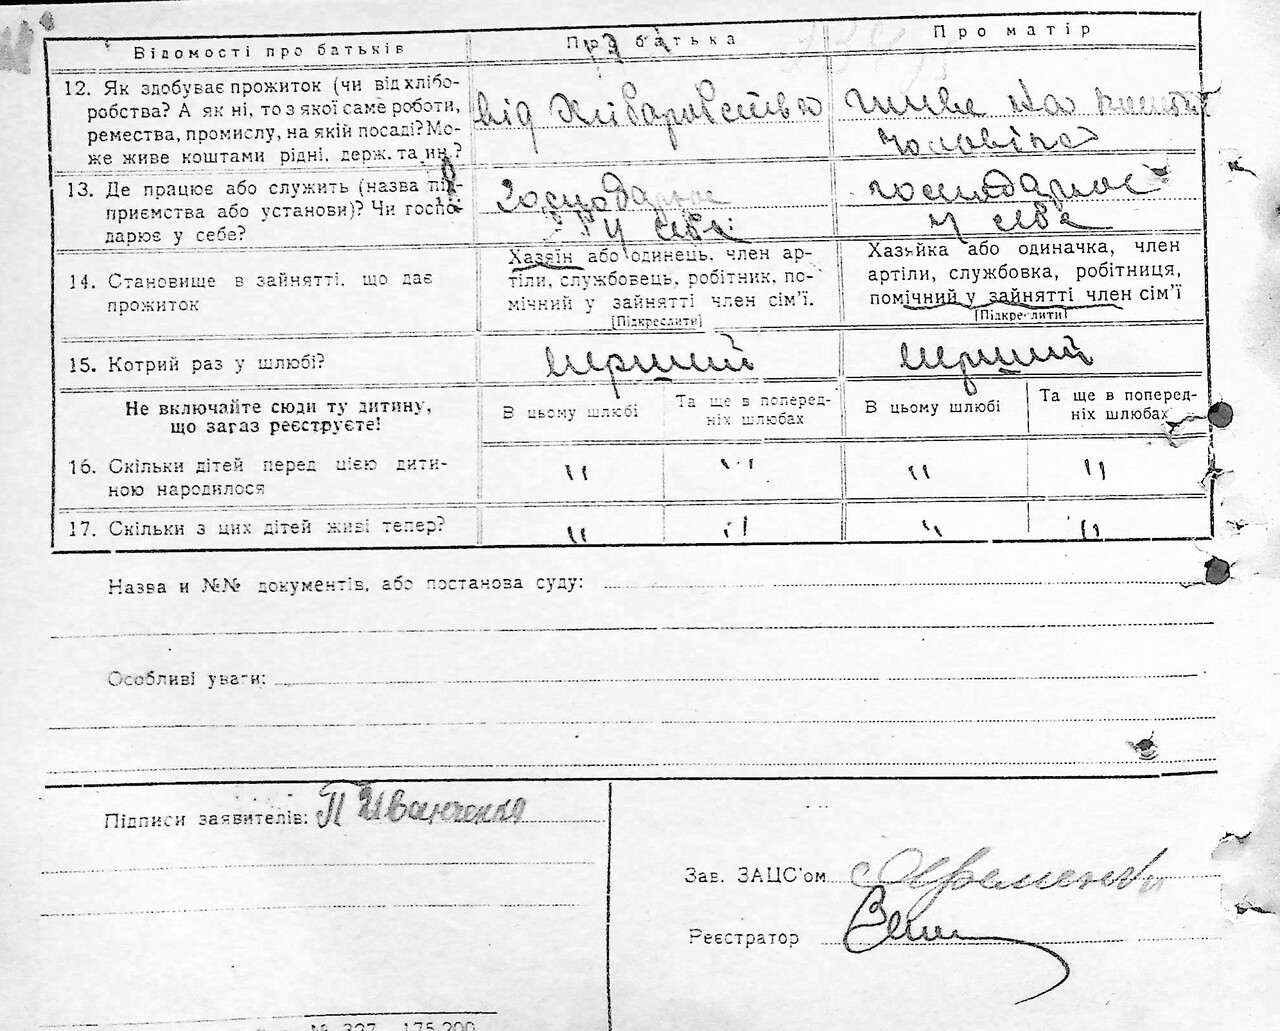 Відомості про батьків
Про батька
Про матір
12. Як здобуває прожиток (чи від хлібо-
робства? А як ні, то з якої саме роботи,
ремества, промислу, на якій посаді? Мо-
же живе коштами рідні, держ. та ин.?
від хліборобства
живе на кошти
чоловіка
13. Де працює або служить (назва під-
приємства або установи)? Чи госпо-
дарює у себе?
господарює
у себе
господарює
у себе
14. Становище в зайнятті, що дає
прожиток
Хазяїн або одинець, член ар-
тіли, службовець, робітник, по-
мічний у зайнятті член сім’ї.
[Підкреслити]
Хазяйка або одиначка, член
артіли, службовка, робітниця,
помічний у зайнятті член сім’ї
[Підкреслити]
15. Котрий раз у шлюбі?
перший
перший
Не включайте сюди ту дитину,
що зараз реєструєте!
В цьому шлюбі
Та ще в поперед-
ніх шлюбах
В цьому шлюбі
Та ще в поперед-
ніх шлюбах
16. Скільки дітей перед цією дити-
ною народилося
" " " "
17. Скільки з цих дітей живі тепер?
" " " "
Назва и №№ документів, або постанова суду:
Особливі уваги:
Підписи заявителів: П Иванченко
Зав. ЗАЦС’ом
Реєстратор
№ 327 175.200